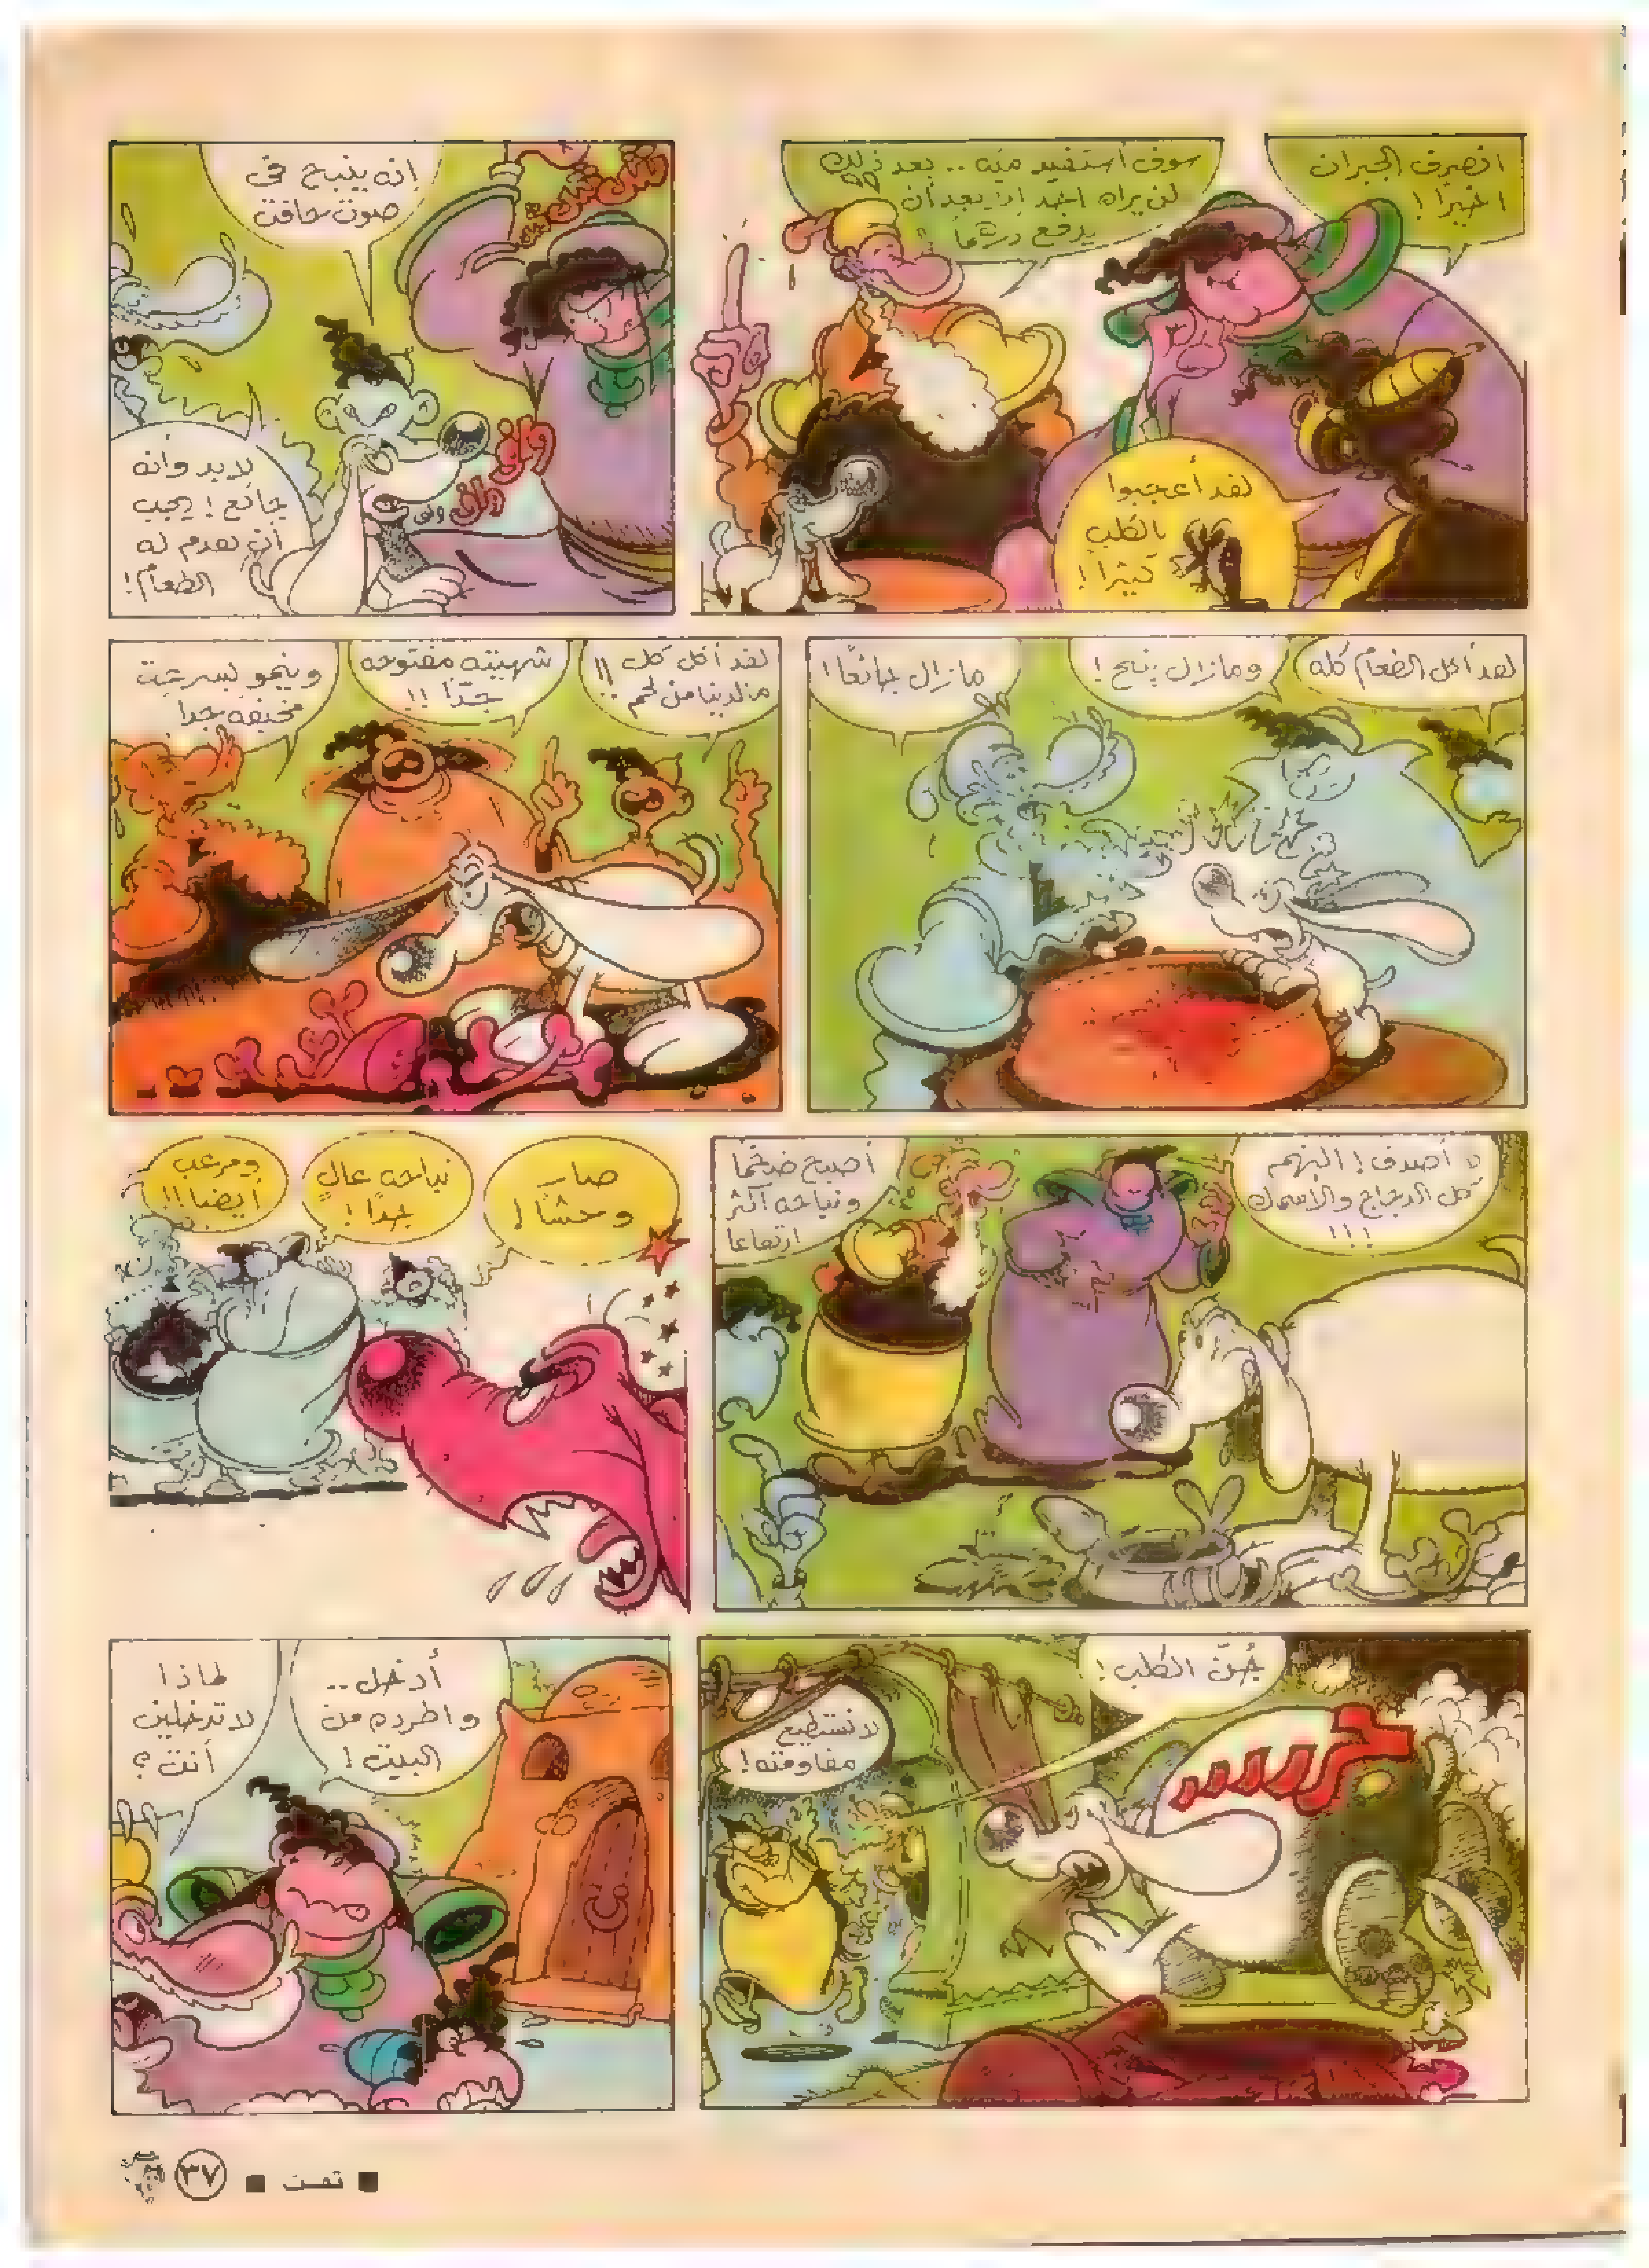 انصرف الجيران
اخيرًا !
سوف أستفيد منه .. بعد ذلك
لن يراه احد إلا بعد أن
يدفع درهما
لقد أعجبوا
بالكلب
كثيرًا !
إنه ينبح فى
صوت خافت
واق
واق
واق
لابد وأنه
جائع ! يجب
أن نقدم له
الطعام !
لقد أكل الطعام كله
ومازال ينبح !
مازال جائعًا !
لقد أكل كل
مالدينا من لحم !!
شهيته مفتوحه
جدًا !!
وينمو بسرعة
مخيفه جدا
لا أصدق ! التهم
كل الدجاج والاسماك
!!!
أصبح ضخما
ونباحه أكثر
ارتفاعا
صار
وحشًا !
نباحه عالٍ
جدًا !
ومرعب
أيضا !!
جُنّ الكلب !
لا نستطيع
مقاومته !
أدخل ..
واطرده من
البيت !
لماذا
لا تدخلين
أنت ؟
■ تمت ■ ٣٧